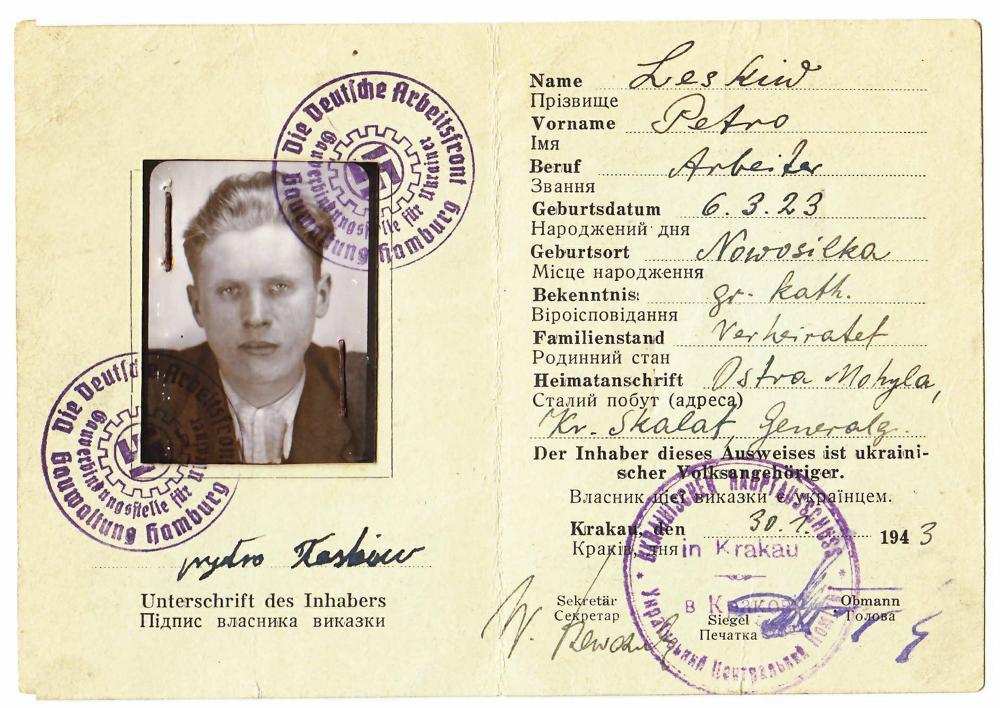 Die Deutsche Arbeitsfront
Gauwaltung Hamburg
Gauverbindungsstelle für Ukrainer
Die Deutsche Arbeitsfront
Gauwaltung Hamburg
Gauverbindungsstelle für
Unterschrift des Inhabers
Підпис власника виказки
Name Leskiw
Прізвище
Vorname Petro
Імя
Beruf Arbeiter
Звання
Geburtsdatum 6.3.23
Народжений дня
Geburtsort Nowosilka
Місце народження
Bekenntnis: gr. kath.
Віроісповідання
Familienstand Verheiratet
Родинний стан
Heimatanschrift Ostra Mohyla,
Сталий побут (адреса)
Kr. Skalat, Generalg.
Der Inhaber dieses Ausweises ist ukraini-
scher Volksangehöriger.
Власник цієї виказки є українцем.
Krakau, den 30.1. 1943
Краків, дня
UKRAINISCHER HAUPTAUSSCHUSS
in Krakau
в Кракові
Український Центральний
Sekretär Siegel Obmann
Секретар Печатка Голова